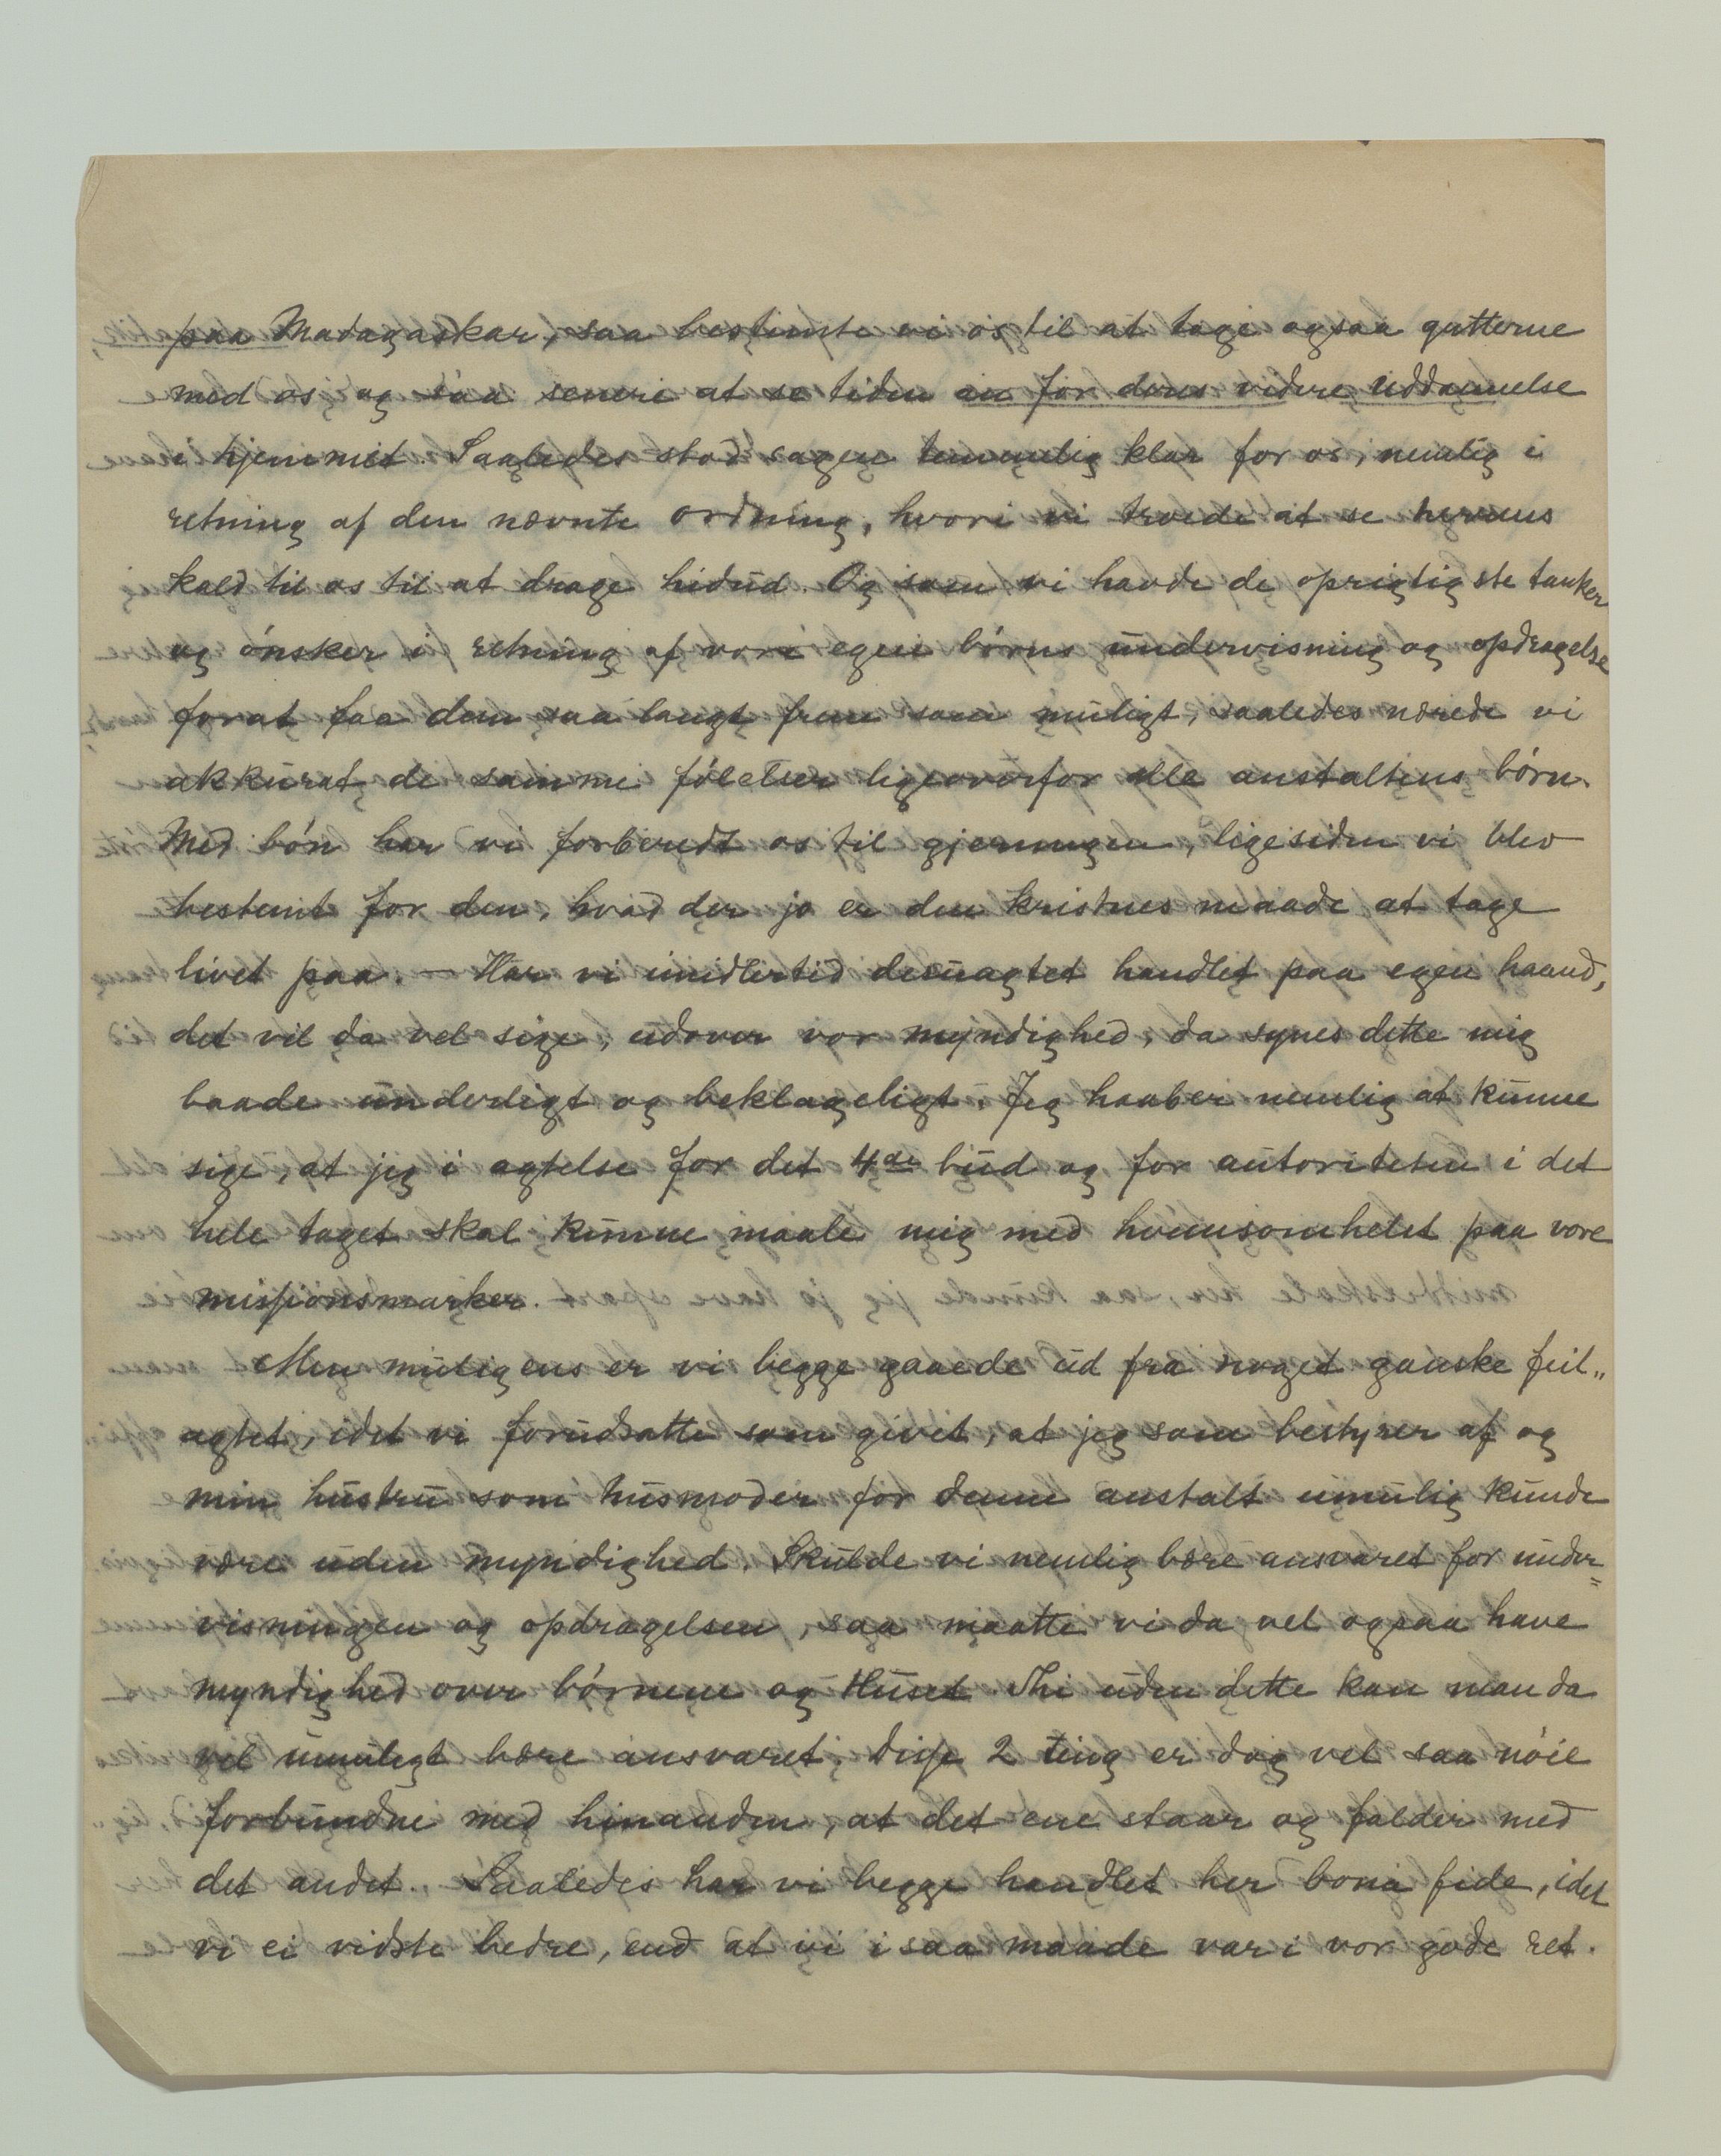 paa Madagaskar, saa bestemte vi os til at tage ogsaa gutterne
med os og saa senere at se tiden an for deres videre uddannelse
i hjemmet. Saaledes stod sagen temmelig klar for os, nemlig i
retning af den nævnte ordning, hvori vi troede at se herrens
kald til os til at drage hidud. Og som vi havde de oprigtigste tanker
og ónsker i retning af vore egen bórns undervisning og opdragelse
forat faa dem saa langt frem som muligt, saaledes nærede vi
akkurat de samme fólelser ligeoverfor alle anstaltens bórn.
Med bón har vi forberedt os til gjerningen, ligesiden vi blev
bestemt for den, hvad der jo er den kristnes maade at tage
livet paa. — Har vi imidlertid desuagtet handlet paa egen haand,
det vil da vel sige, udover vor myndighed, da synes dette mig
baade underligt og beklageligt. Jeg haaber nemlig at kunne
sige, at jeg i agtelse for det 4de bud og for autoriteten i det
hele taget skal kunne maale mig med hvemsomhelst paa vore
missionsmarker.
Men muligens er vi begge gaaede ud fra noget ganske feil„
agtet, idet vi forudsatte som givet, at jeg som bestyrer af og
min hustru som husmoder for denne anstalt umulig kunde
være uden myndighed. Skulde vi nemlig bære ansvaret for under=
visningen og opdragelsen, saa maatte vi da vel ogsaa have
myndighed over bórnene og Huset. Thi uden dette kan man da
vel umuligt bære ansvaret; disse 2 ting er dog vel saa nóie
forbundne med hinanden, at det ene staar og falder med
det andet. Saaledes har vi begge handlet her bona fide, idet
vi ei vidste bedre, end at vi i saa maade var i vor gode ret.